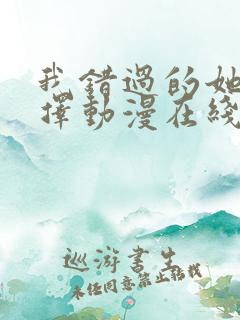 我錯過的她
擇動漫在綫
巡游書生
未經同意禁止轉載